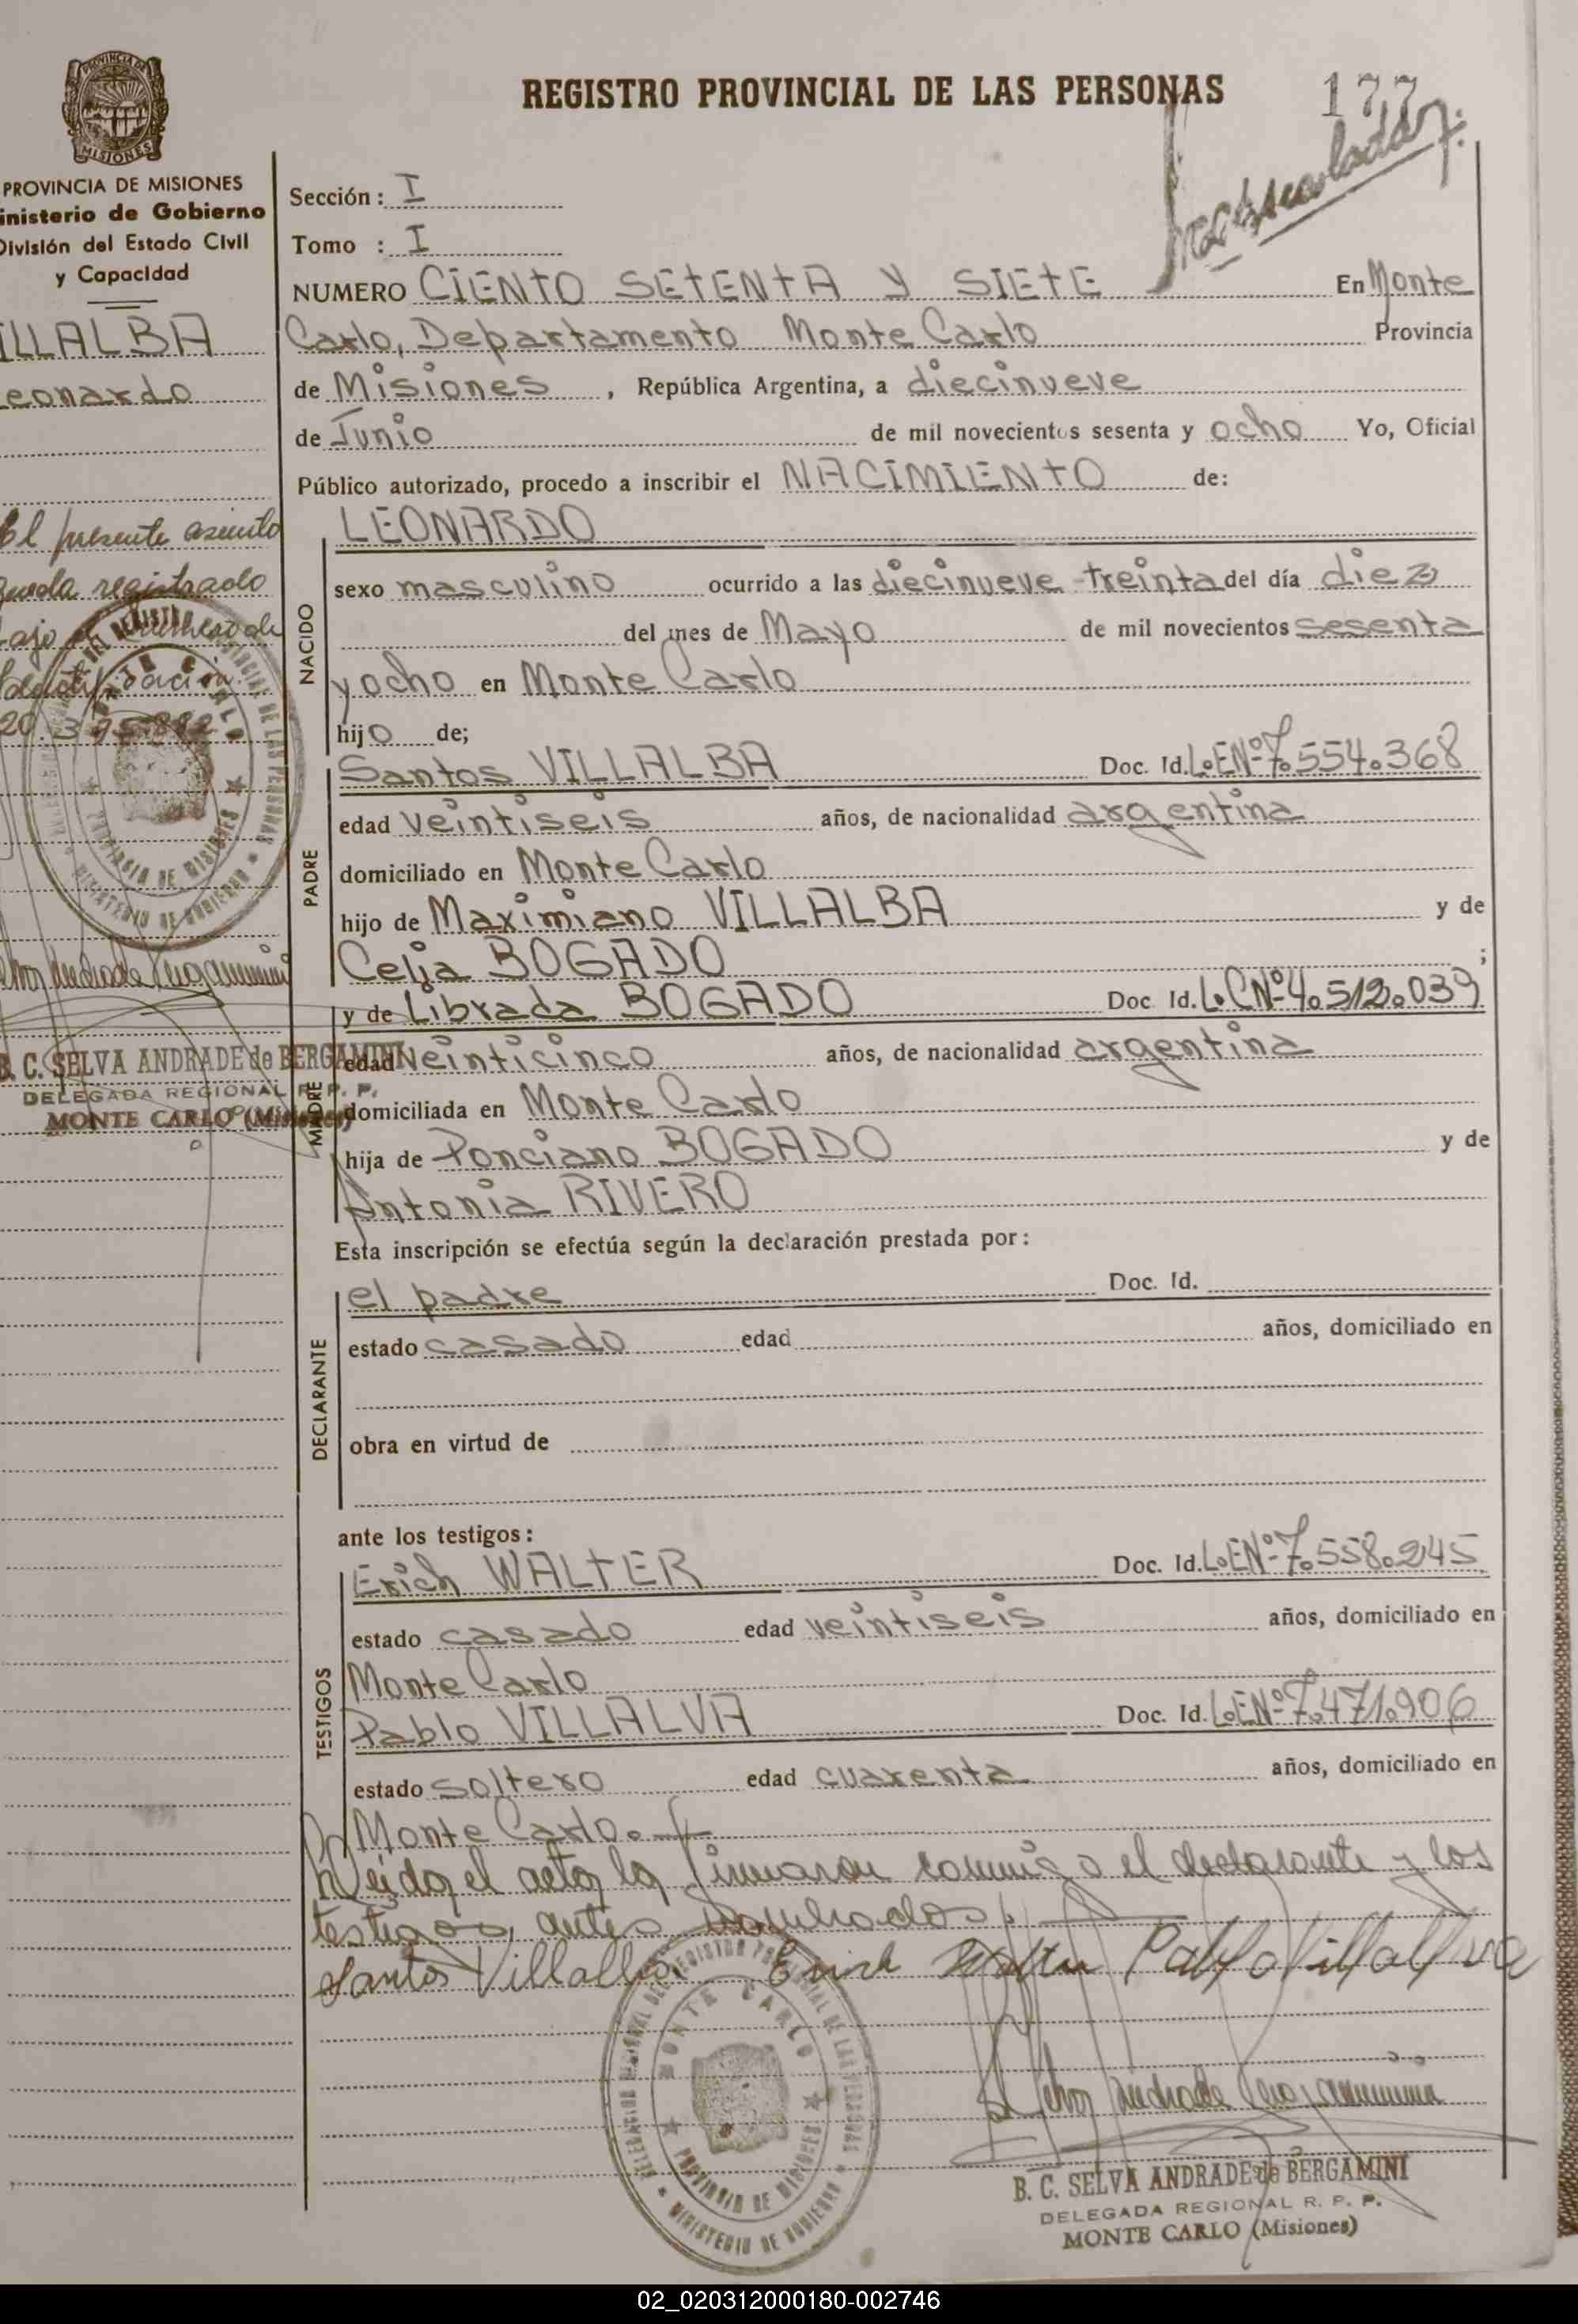 REGISTRO PROVINCIAL DE LAS PERSONAS
177
PROVINCIA DE MISIONES
MISIONES
PROVINCIA DE MISIONES
inisterio de Gobierno
División del Estado Civil
y Capacidad
ILLALBA
eonardo
El presente asiento
queda registrado
bajo
20.395.882
B. C. SELVA ANDRADE de BERGAMINI
DELEGADA REGIONAL R. P. P.
MONTE CARLO (Misiones)
Sección: I
Tomo : I
NUMERO CIENTO SETENTA Y SIETE En Monte
Carlo, Departamento Monte Carlo Provincia
de Misiones, República Argentina, a diecinueve
de Junio de mil novecientos sesenta y ocho Yo, Oficial
Público autorizado, procedo a inscribir el NACIMIENTO de:
NACIDO
LEONARDO
sexo masculino ocurrido a las diecinueve treinta del día diez
del mes de Mayo de mil novecientos sesenta
y ocho en Monte Carlo
hijo de;
PADRE
Santos VILLALBA Doc. Id. L.E.Nº 7.554.368
edad veintiseis años, de nacionalidad argentina
domiciliado en Monte Carlo
hijo de Maximiano VILLALBA y de
Celia BOGADO ;
MADRE
y de Librada BOGADO Doc. Id. L.C.Nº 4.512.039
edad veinticinco años, de nacionalidad argentina
domiciliada en Monte Carlo
hija de Ponciano BOGADO y de
Antonia RIVERO
Esta inscripción se efectúa según la declaración prestada por:
DECLARANTE
el padre Doc. Id.
estado casado edad años, domiciliado en
obra en virtud de
ante los testigos:
TESTIGOS
Erich WALTER Doc. Id. L.E.Nº 7.558.245
estado casado edad veintiseis años, domiciliado en
Monte Carlo
Pablo VILLALVA Doc. Id. L.E.Nº 7.471.906
estado soltero edad cuarenta años, domiciliado en
Monte Carlo.
Leída el acta, la firmaron conmigo el declarante y los
testigos, antes nombrados.
Santos Villalba Erich Walter Pablo Villalva
MONTE CARLO
PROVINCIA DE MISIONES
MINISTERIO DE GOBIERNO
B. C. SELVA ANDRADE de BERGAMINI
DELEGADA REGIONAL R. P. P.
MONTE CARLO (Misiones)
02_020312000180-002746